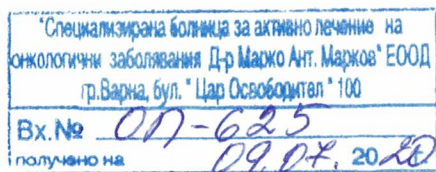 "Специализирана болница за активно лечение на
онкологични заболявания Д-р Марко Ант. Марков" ЕООД
гр.Варна, бул. " Цар Освободител " 100
Вх.№ ОП-625
получено на 09.07. 2020